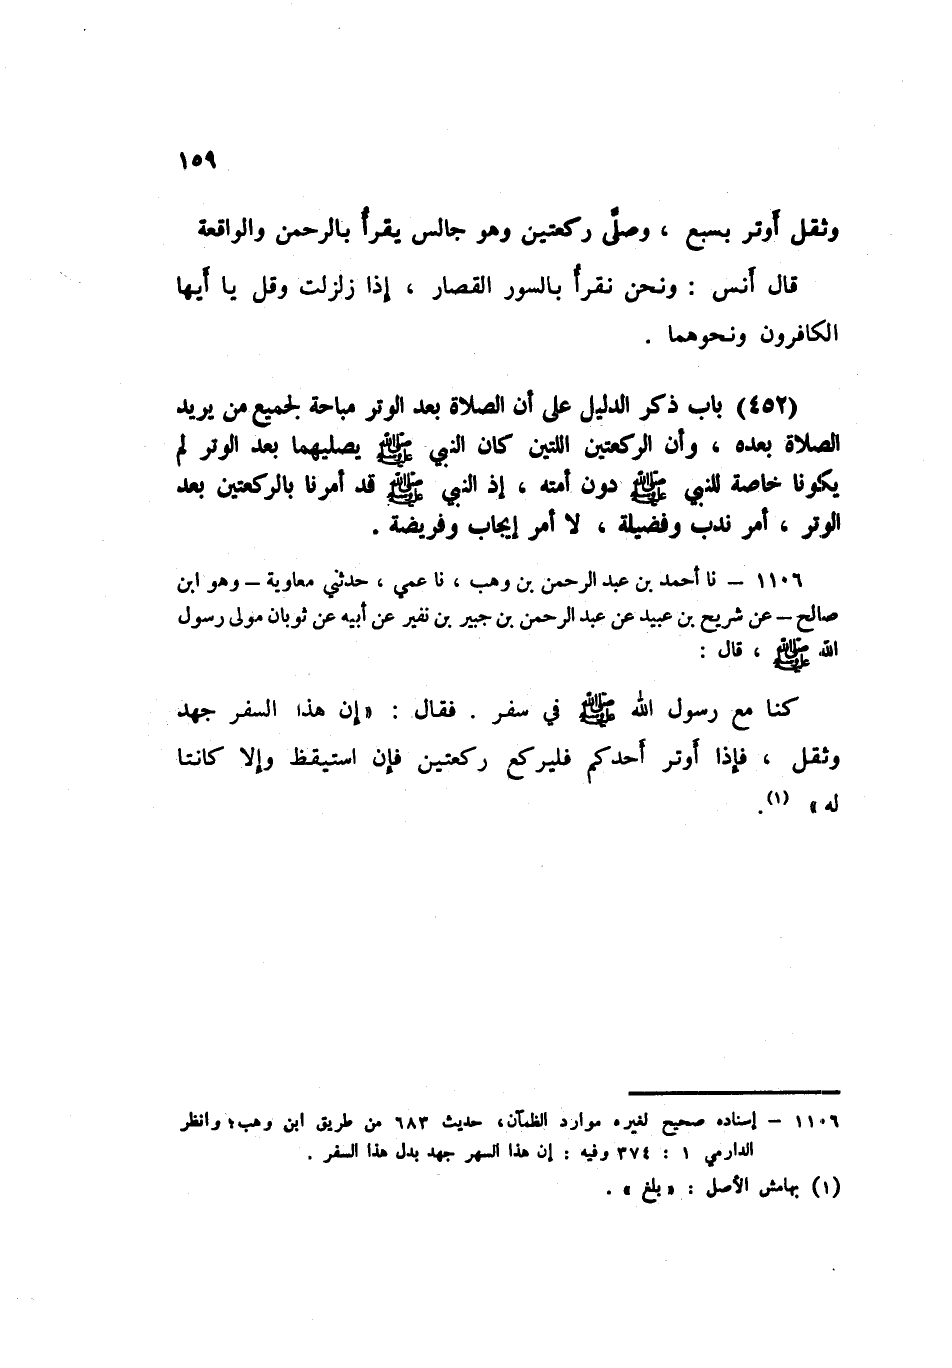 ١٥٩
وثقل أوتر بسبع ، وصلَّى ركعتين وهو جالس يقرأ بالرحمن والواقعة
قال أنس : ونحن نقرأ بالسور القصار ، إذا زلزلت وقل يا أيها
الكافرون ونحوهما .
(٤٥٢) باب ذكر الدليل على أن الصلاة بعد الوتر مباحة لجميع من يريد
الصلاة بعده ، وأن الركعتين اللتين كان النبي ﷺ يصليهما بعد الوتر لم
يكونا خاصة للنبي ﷺ دون أمته ، إذ النبي ﷺ قد أمرنا بالركعتين بعد
الوتر ، أمر ندب وفضيلة ، لا أمر إيجاب وفريضة .
١١٠٦ – نا أحمد بن عبد الرحمن بن وهب ، نا عمي ، حدثني معاوية – وهو ابن
صالح – عن شريح بن عبيد عن عبد الرحمن بن جبير بن نفير عن أبيه عن ثوبان مولى رسول
الله ﷺ ، قال :
كنا مع رسول الله ﷺ في سفر . فقال : «إن هذا السفر جهد
وثقل ، فإذا أوتر أحدكم فليركع ركعتين فإن استيقظ وإلا كانتا
له » (١).
١١٠٦ – إسناده صحيح لغيره موارد الظمآن، حديث ٦٨٣ من طريق ابن وهب؛ وانظر
الدارمي ١ : ٣٧٤ وفيه : إن هذا السهر جهد بدل هذا السفر .
(١) بهامش الأصل : « بلغ » .